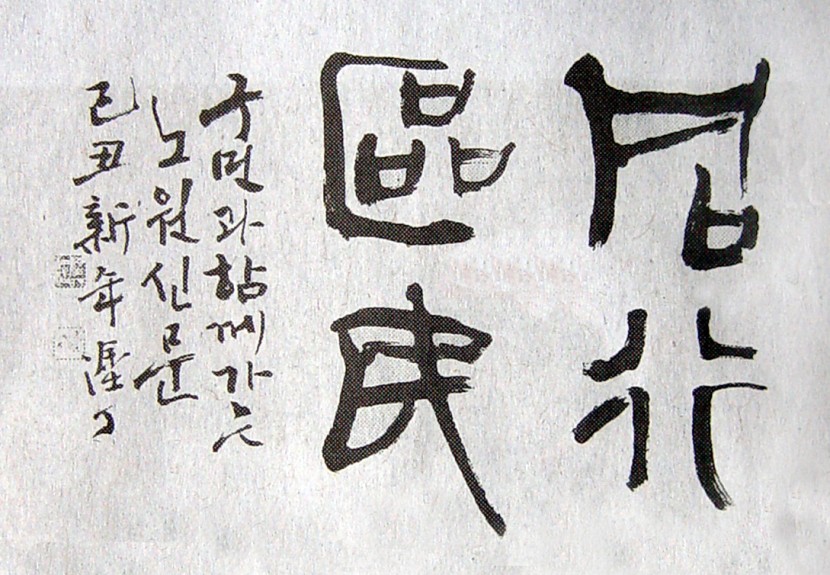 同行
區民
구민과 함께 가는
노원신문
己丑 新年